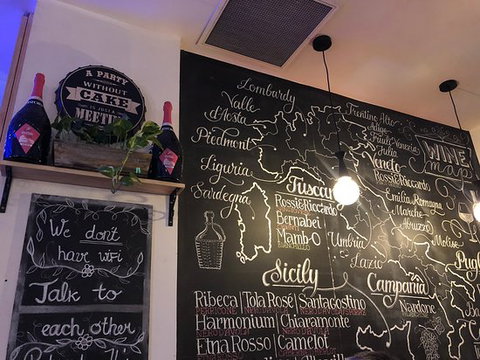 A PARTY
WITHOUT
CAKE
IS JUST A
MEETING
We don't
have wifi
Talk to
each other
WINE
map
Lombardy
Valle
d'Aosta
Piemont
Liguria
Sardegna
Trentino Alto
Adige
Friuli Venezia
Julia
Veneto
Rossi&Riccardo
Emilia Romagna
Marche
Abruzzo
Molise
Tuscany
Rossi&Riccardo
Bernabei
Mamb-O
Umbria
Lazio
Campania
Nardone
Sicily
Ribeca | Tola Rosé | Santagostino
Harmonium | Chiaramonte
Etna Rosso | Camelot